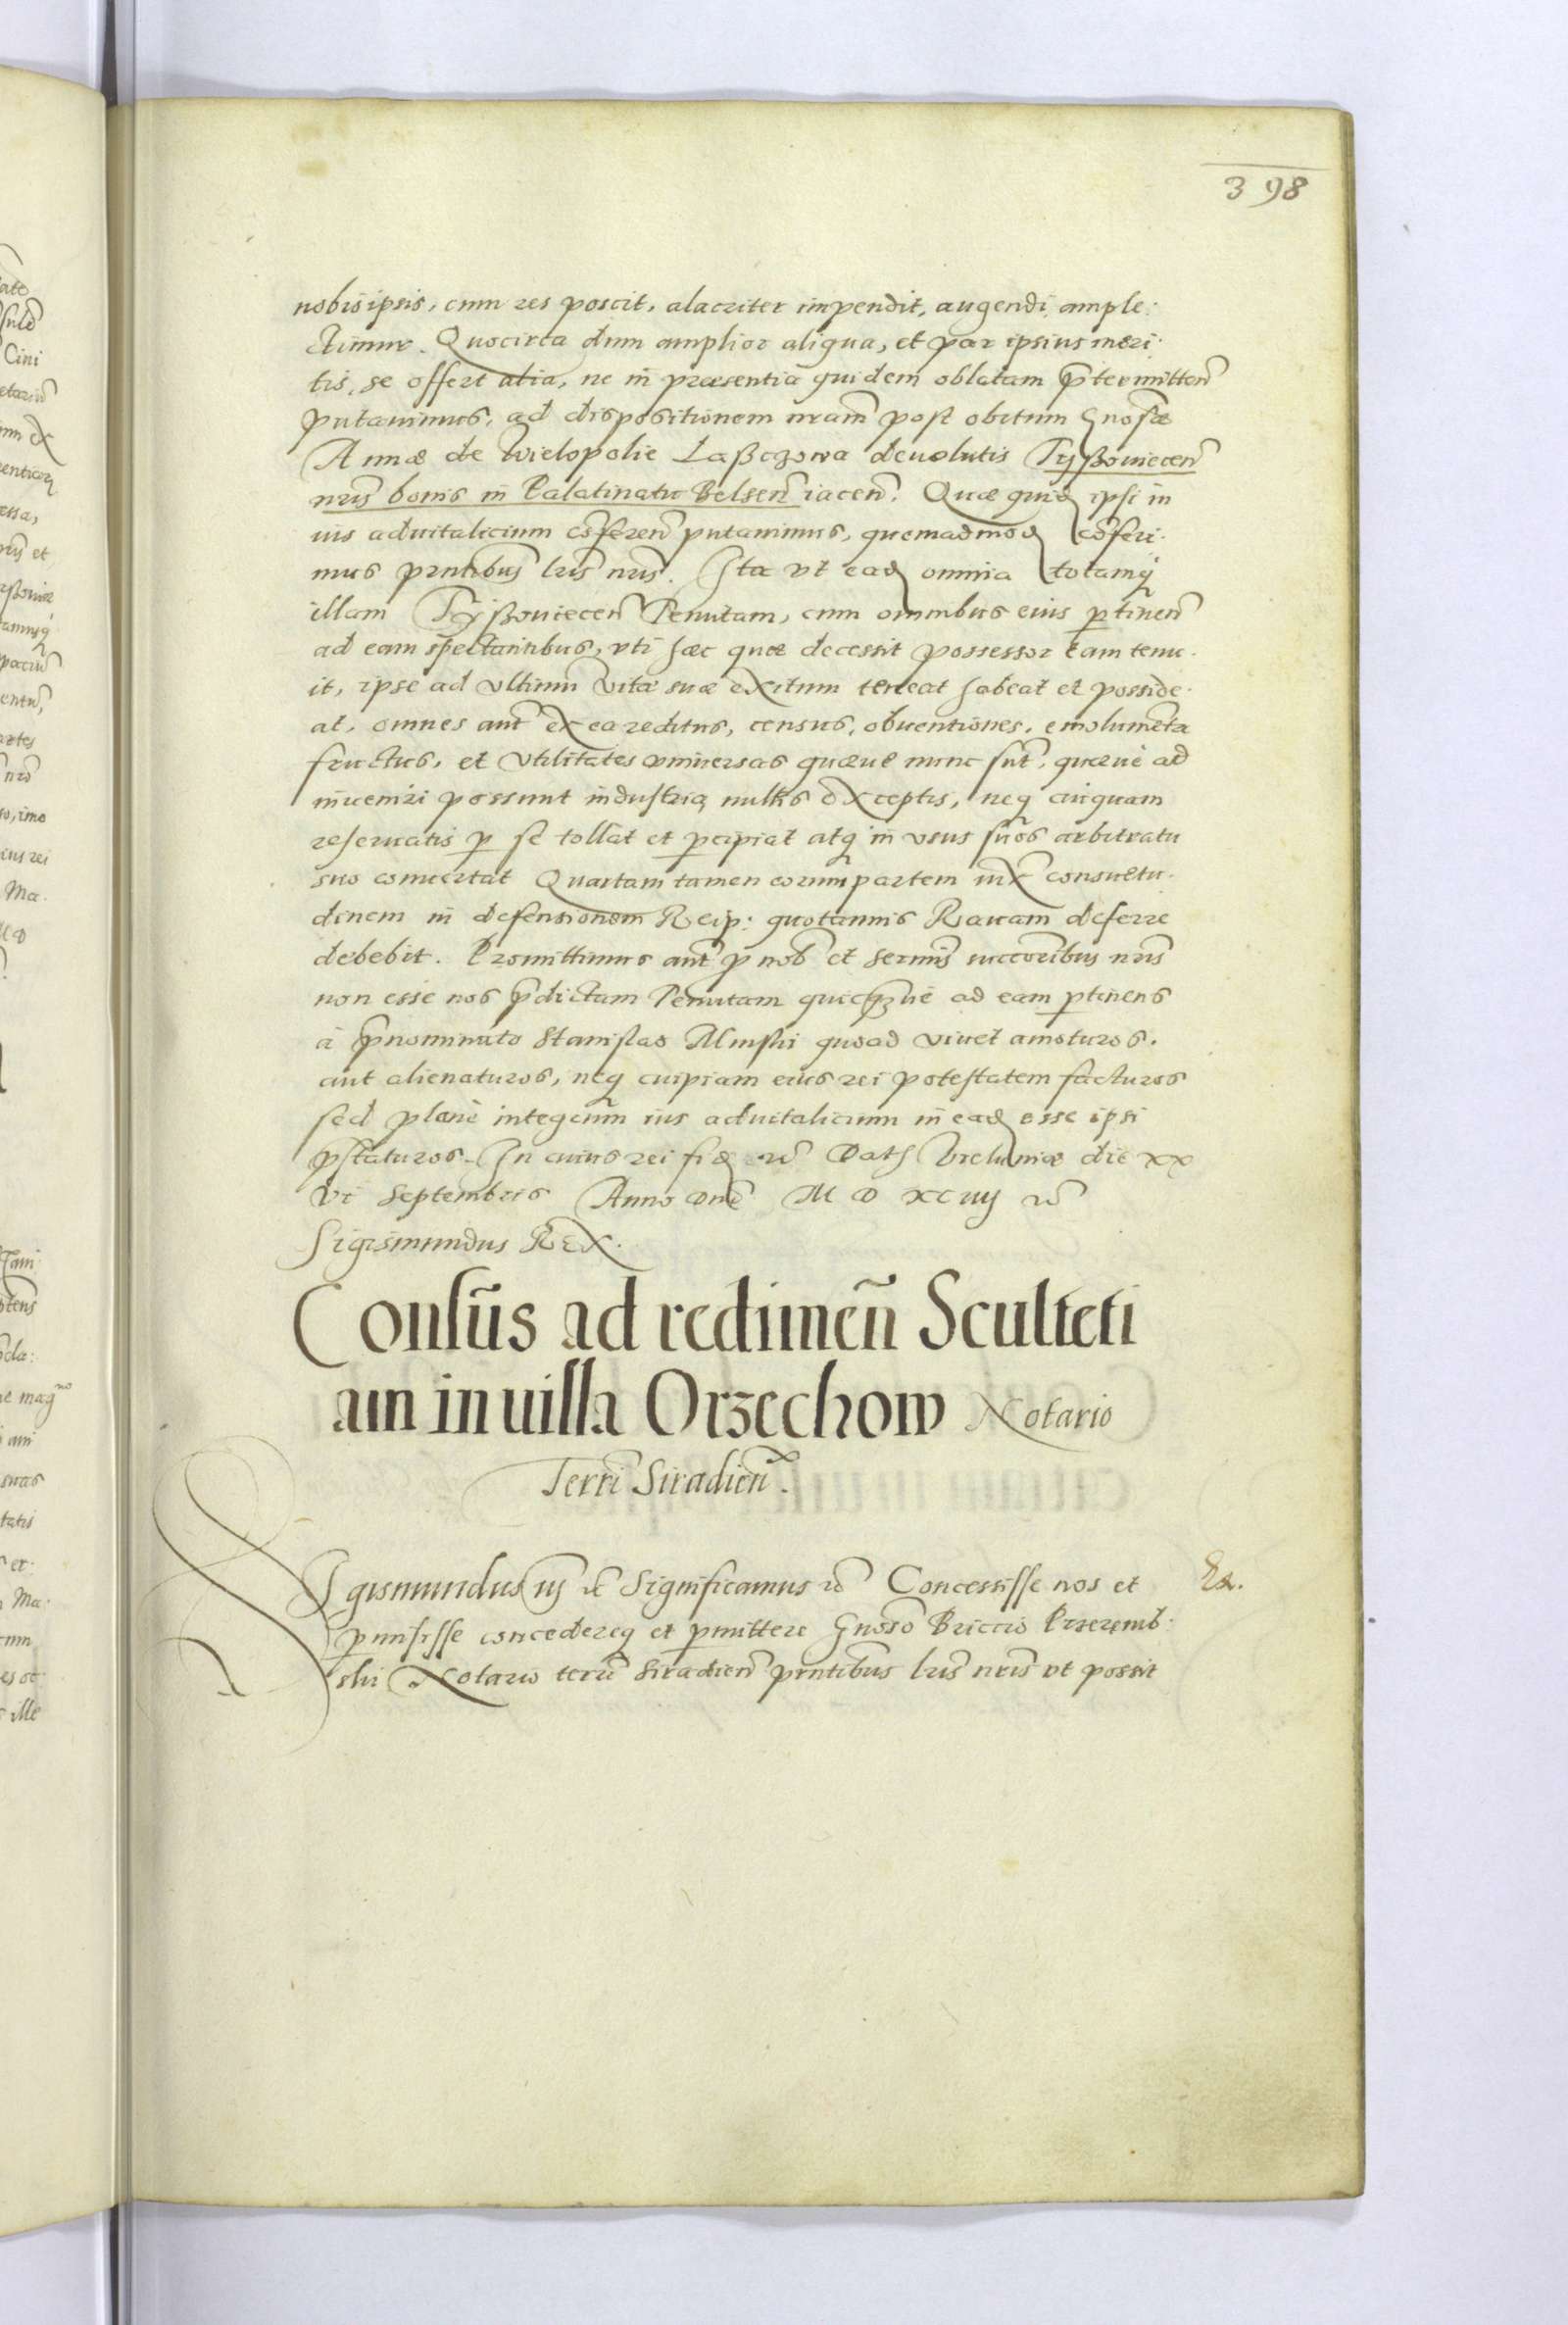 398
nobis ipsis, cum res poscit, alacriter impendit, augendi, ample:
ctimur. Quocirca dum amplior aliqua, et par ipsius meri:
tis, se offert alia, ne in præsentia quidem oblatam p̃termitten̄
putavimus, ad dispositionem nram̃ post obitum Gnosæ
Annæ de Wielopolie Laßczowa devolutis Tyßoviecen̄
nris̃ bonis in Palatinatu Belsen̄ iacen̄. Quæ quid ipsi in
ius advitalicium cōferen̄ putavimus, quemadmod cōferi:
mus pr̃ntibus lris̃ nris̃. Ita vt ead omnia totamq
illam Tyßoviecen̄ Tenutam, cum omnibus eius ꝑtinen̄
ad eam spectantibus, vti hæc quæ decessit possessor eam tenu:
it, ipse ad vltimū vitæ suæ exitum teneat habeat et posside:
at, omnes aut̃ ex ea reditus, census, obventiones, emolumēta
fructus, et vtilitates vniversas quæve nunc sūt, quæve ad
inveniri possunt industria, nullis exceptis, neq cuiquam
reservatis ꝑ se tollat et ꝑcipiat atq in vsus suos arbitratu
suo convertat Quartam tamen eorum partem iux̃ consuetu:
dinem in defensionem Reip: quotannis Ravam deferre
debebit. Promittimus aut̃ p nob̃ et sermis̃ succoribus̃ nris̃
non esse nos p̃dictam Tenutam quicq̃ve ad eam ꝑtinens
à p̃nominato Stanislao Minski quoad vivet amoturos.
aut alienaturos, neq cuipiam eius rei potestatem facturos
sed planè integrum ius advitalicium in ead esse ipsi
p̃staturos. In cuius rei fid ꝛc̃ Dat̃ Vieluniæ die xx
vi Septembris Anno Dnĩ M D XCiiij ꝛc̃
Sigismundus REX.
Consūs ad redimen̄ Sculteti
am in villa Orzechow Notario
Terrĩ Siradien̄.
Sigismundus iij ꝛc̃ Significamus ꝛc̃ Concessisse nos et
ꝑmisisse concedereq et ꝑmittere Gnoso Briccio Przeremb:
ski Notario terrĩ Siradien̄ pr̃ntibus lris̃ nris̃ vt possit
Ex.